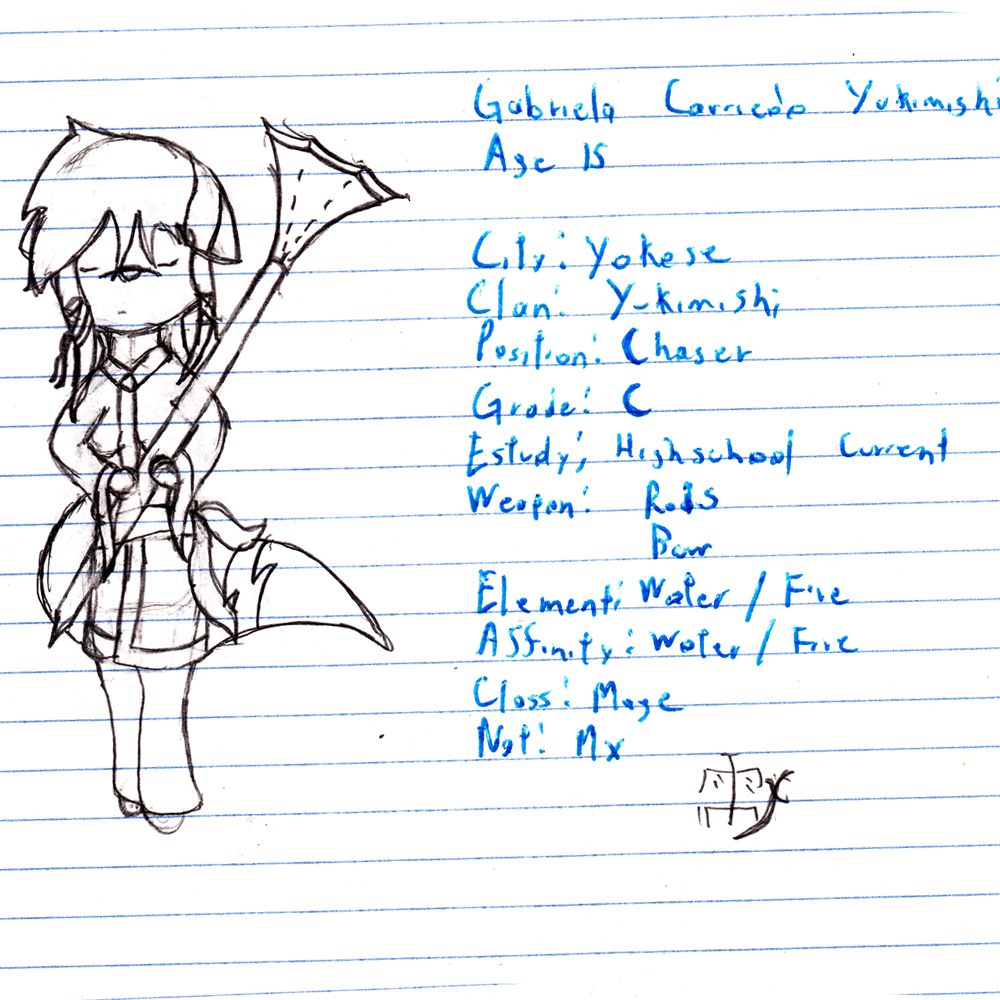 Gabriela Carriedo Yukimishi
Age 15
City: Yokese
Clan: Yukimishi
Position: Chaser
Grade: C
Estudy; Highschool Current
Weapon: Rods
Bow
Element: Water / Fire
Affinity: Water / Fire
Class: Mage
Nat: Mx